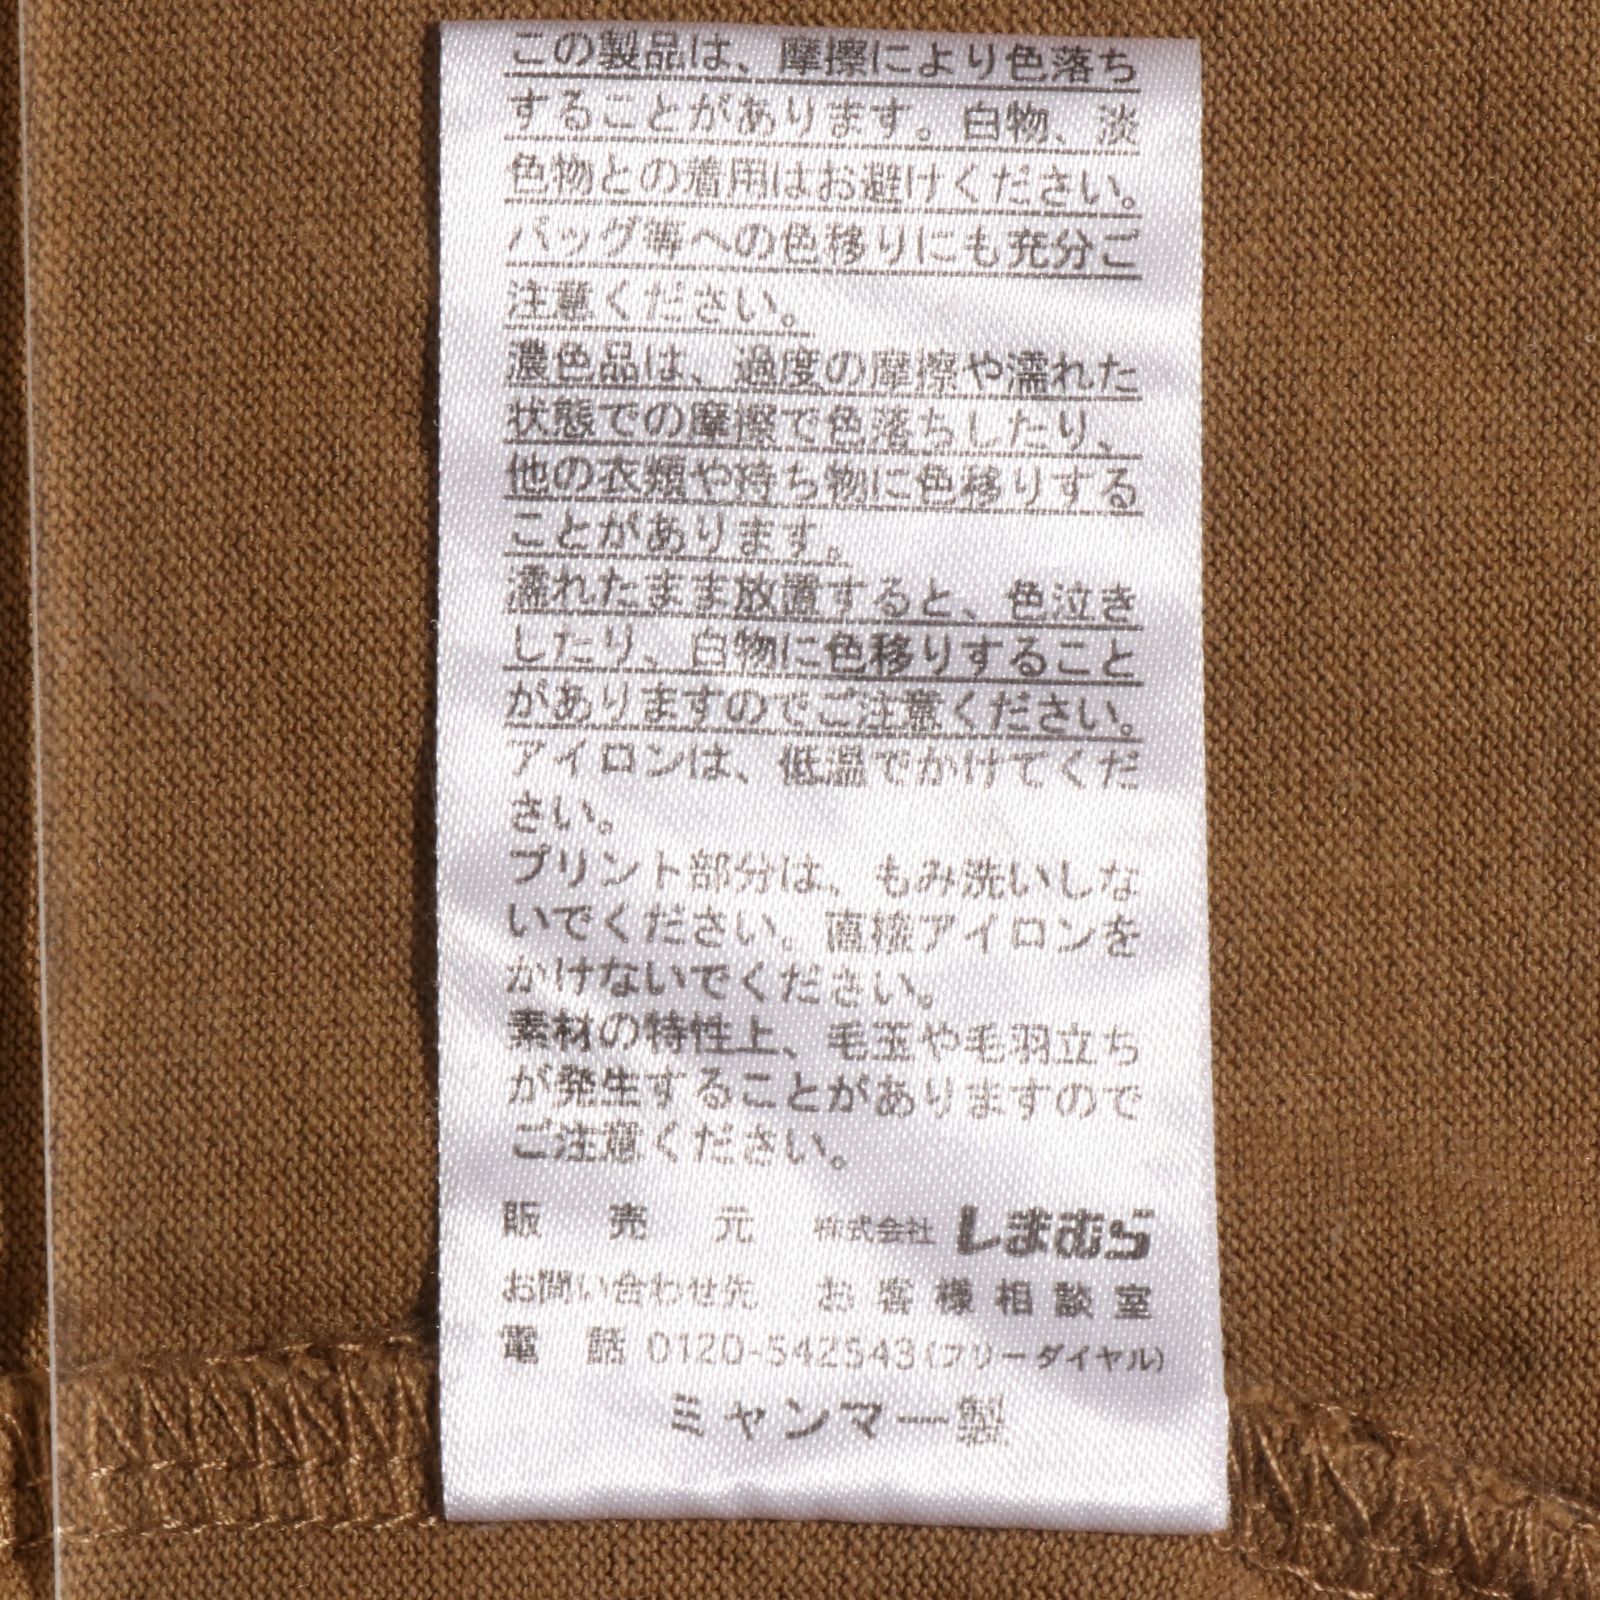 この製品は、摩擦により色落ち
することがあります。白物、淡
色物との着用はお避けください。
バッグ等への色移りにも充分ご
注意ください。
濃色品は、過度の摩擦や濡れた
状態での摩擦で色落ちしたり、
他の衣類や持ち物に色移りする
ことがあります。
濡れたまま放置すると、色泣き
したり、白物に色移りすること
がありますのでご注意ください。
アイロンは、低温でかけてくだ
さい。
プリント部分は、もみ洗いしな
いでください。直接アイロンを
かけないでください。
素材の特性上、毛玉や毛羽立ち
が発生することがありますので
ご注意ください。
販売元 株式会社 しまむら
お問い合わせ先 お客様相談室
電話 0120-542543(フリーダイヤル)
ミャンマー製